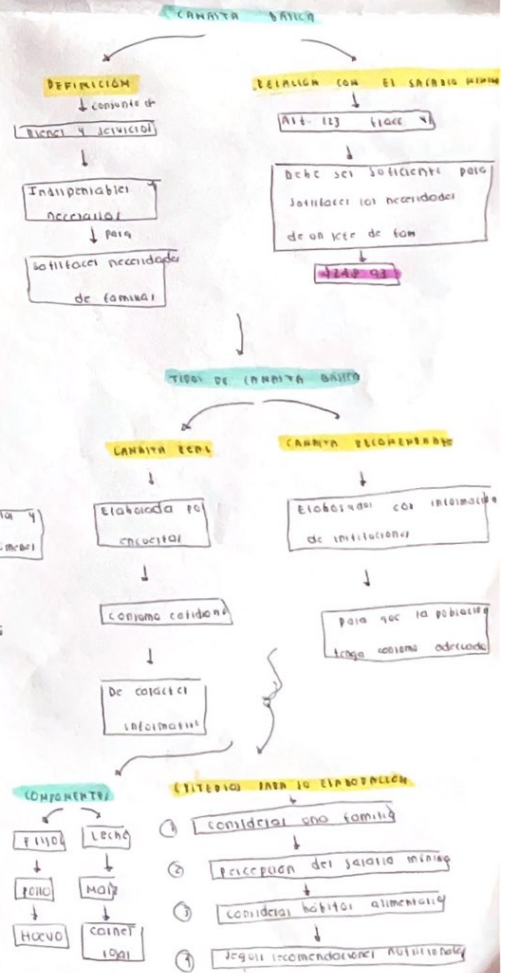 CANASTA BÁSICA
DEFINICIÓN
conjunto de
Bienes y servicios
Indispensables y
necesarios
para
satisfacer necesidades
de familias
RELACIÓN CON EL SALARIO MINIMO
Art. 123 fracc VI
Debe ser suficiente para
satisfacer las necesidades
de un jefe de fam
$248.93
TIPOS DE CANASTA BÁSICA
CANASTA REAL
Elaborada por
encuestas
consumo cotidiano
De carácter
informativo
CANASTA RECOMENDADA
Elaboradas con información
de instituciones
para que la población
tenga consumo adecuado
COMPONENTES
Frijol
Pollo
Huevo
Leche
Maíz
carnes
rojas
CRITERIOS PARA SU ELABORACIÓN
① considerar una familia
② percepción del salario mínimo
③ considerar hábitos alimentarios
④ seguir recomendaciones nutricionales